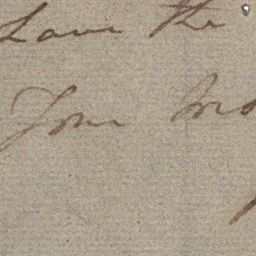 have the
Your mo